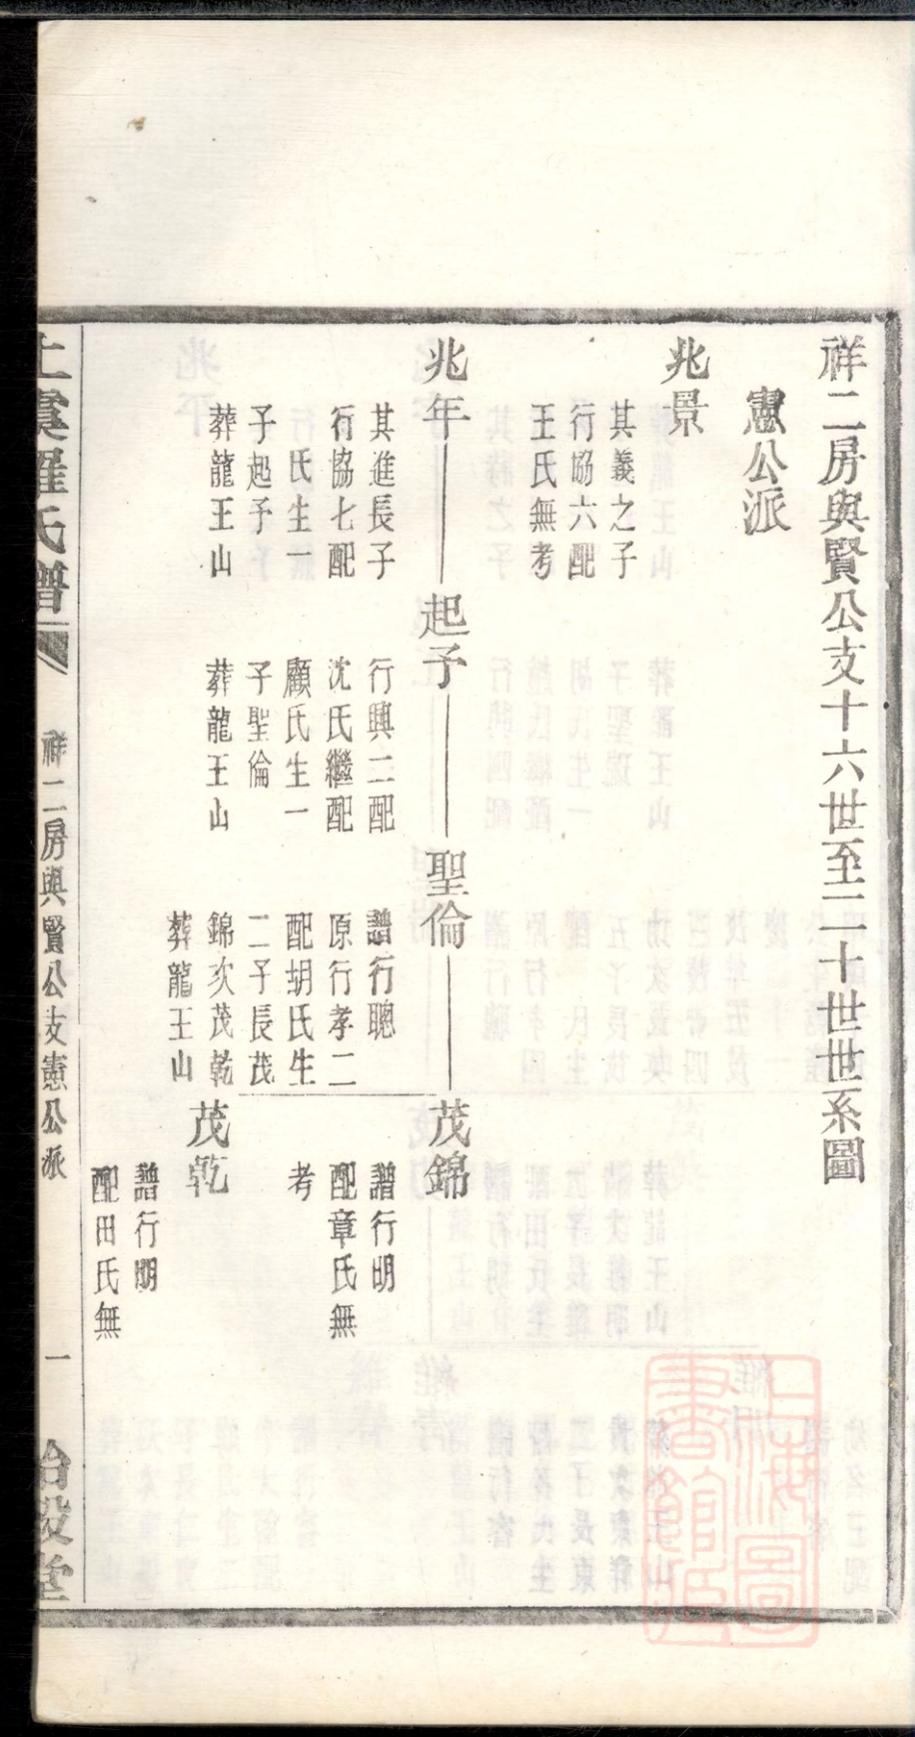 祥二房與賢公支十六世至二十世世系圖
憲公派
兆景
其義之子
行協六配
王氏無考
兆年
其進長子
行協七配
氏生一
子起予
葬龍王山
起予
行興二配
沈氏繼配
顧氏生一
子聖倫
葬龍王山
聖倫
譜行聰
原行孝二
配胡氏生
二子長茂
錦次茂乾
葬龍王山
茂錦
譜行明
配章氏無
考
茂乾
譜行明
配田氏無
上虞羅氏譜
祥二房與賢公支憲公派
一
上海圖書館藏